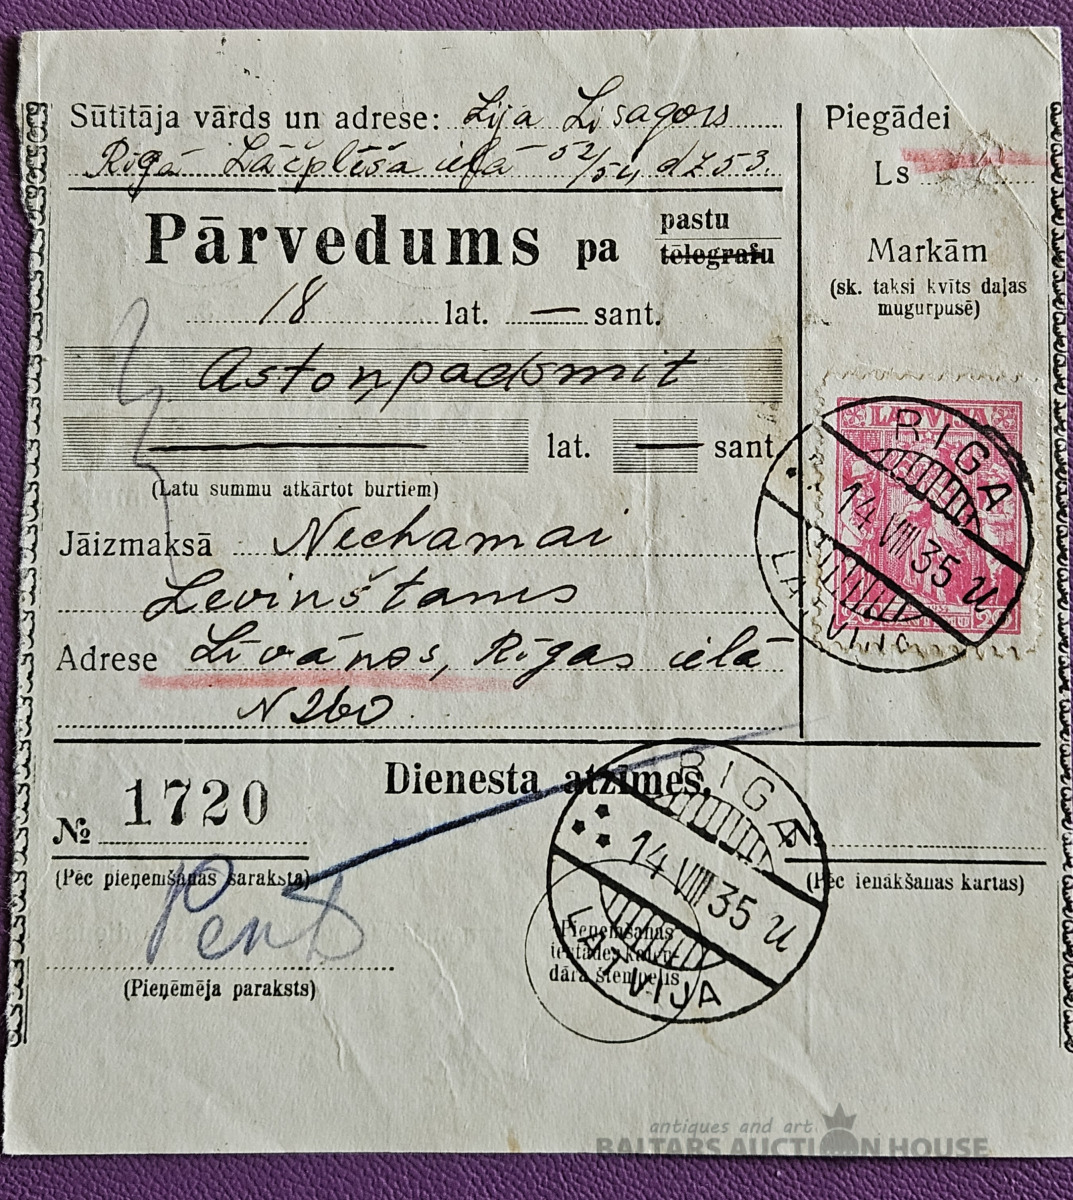 Sūtītāja vārds un adrese: Lija Lisagors
Rīgā Lāčplēša ielā 52/54 dz 53.
Pārvedums pa pastu
telegrafu
18 lat. — sant.
Astoņpadsmit
— lat. — sant
(Latu summu atkārtot burtiem)
Jāizmaksā Nechamai
Levinštams
Adrese Līvānos, Rīgas ielā
N 260.
Piegādei
Ls
Markām
(sk. taksi kvīts daļas
mugurpusē)
LATVIJA
RIGA
14 VIII 35 u
LATVIJA
20 20
Dienesta atzīmes.
№ 1720
(Pēc pieņemšanas saraksta)
(Pieņēmēja paraksts)
RIGA
14 VIII 35 u
LATVIJA
Pieņemšanas
iestādes kalen-
dāra štempelis
(Pēc ienākšanas kartas)
antiques and art
BALTARS AUCTION HOUSE